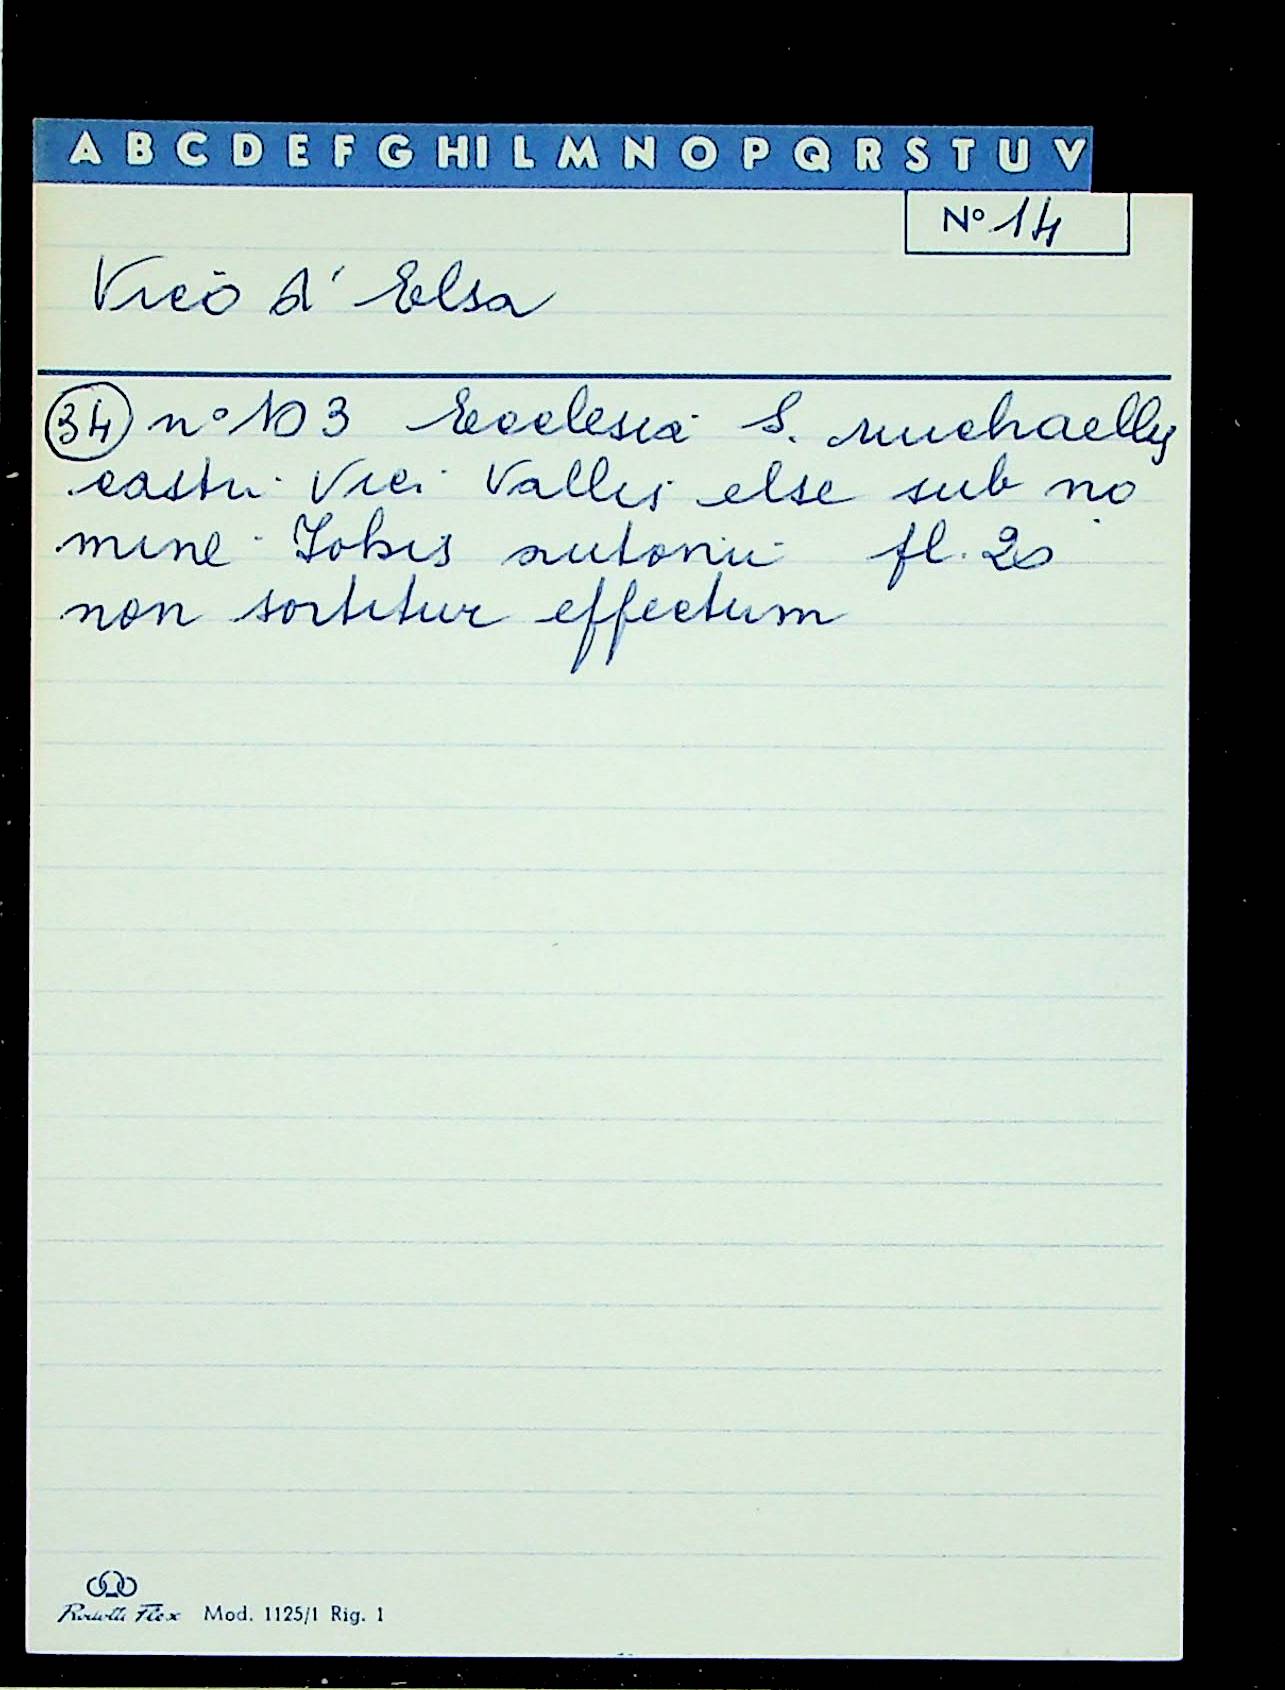 A B C D E F G HI L M N O P Q R S T U V
N° 14
Vico d'Elsa
34 n° 103 Ecclesia S. michaellis
castri Vici Vallis else sub no
mine Johis antonii fl. 20
non sortitur effectum
Flex Mod. 1125/1 Rig. 1